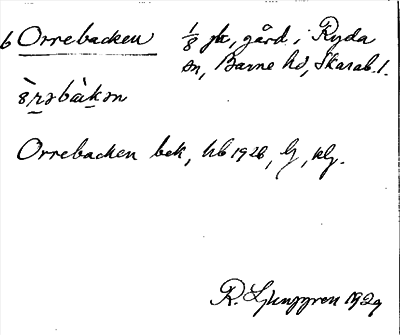 6 Orrebacken 1/8 jbr, gård, Ryda
sn, Barne hd, Skarab. l.
Orrebacken bek, hb 1926, lj, klj.
R. Ljunggren 1929